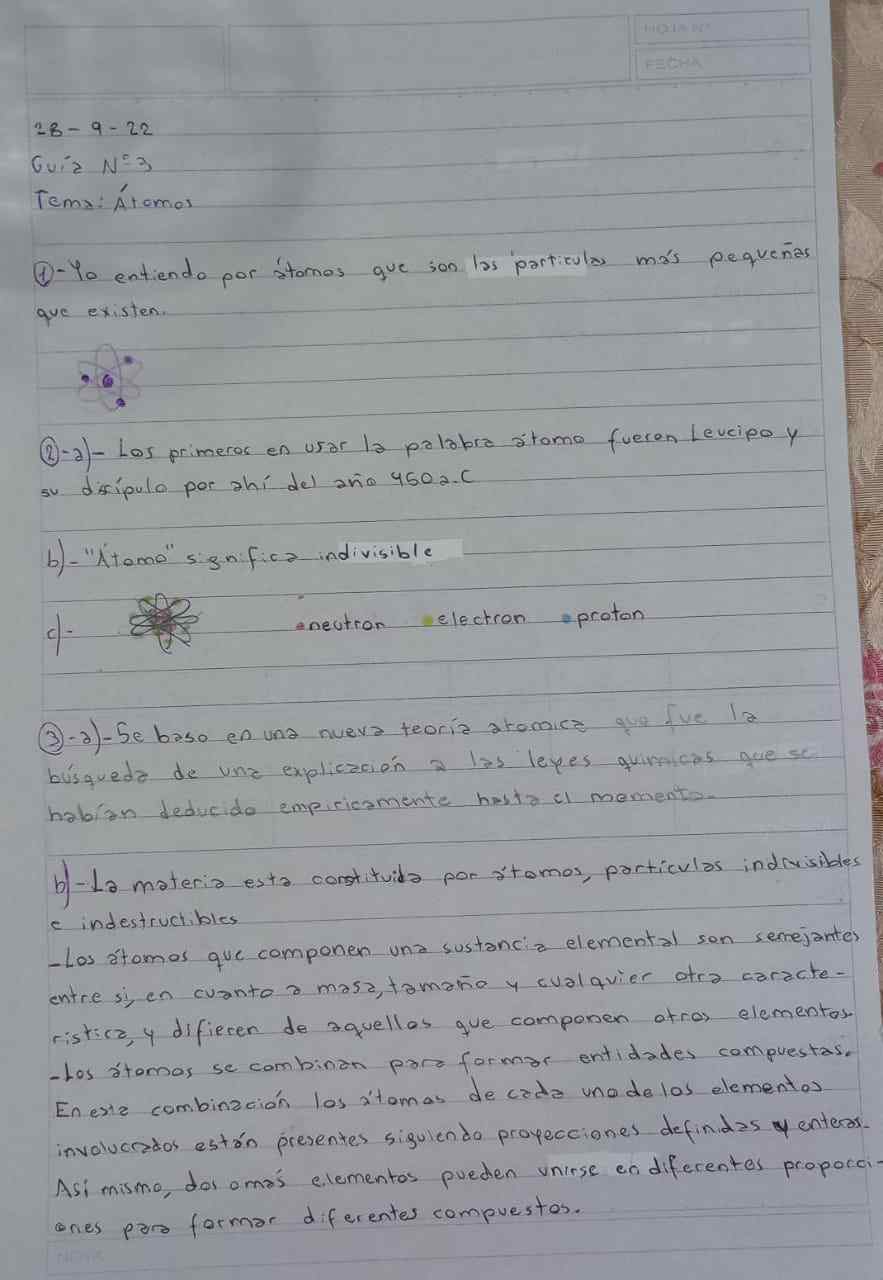 HOJA Nº
FECHA
28-9-22
Guía Nº3
Tema: Átomos
①-Yo entiendo por átomos que son las particulas más pequeñas
que existen.
②-a)- Los primeros en usar la palabra átomo fueron Leucipo y
su disípulo por ahí del año 450 a.C
b)-"Átomo" significa indivisible
c)- neutron electron proton
③-a)-Se baso en una nueva teoría atomica que fue la
búsqueda de una explicación a las leyes quimicas que se
habían deducido empiricamente hasta el momento.
b)-La materia esta constituida por átomos, partículas indivisibles
e indestructibles
-Los átomos que componen una sustancia elemental son semejantes
entre si, en cuanto a masa, tamaño y cualquier otra caracte-
ristica, y difieren de aquellos que componen otros elementos.
-Los átomos se combinan para formar entidades compuestas.
En esta combinación los átomos de cada uno de los elementos
involucrados están presentes siguiendo proyecciones definidas y enteras.
Así mismo, dos o más elementos pueden unirse en diferentes proporci-
ones para formar diferentes compuestos.
NOTA